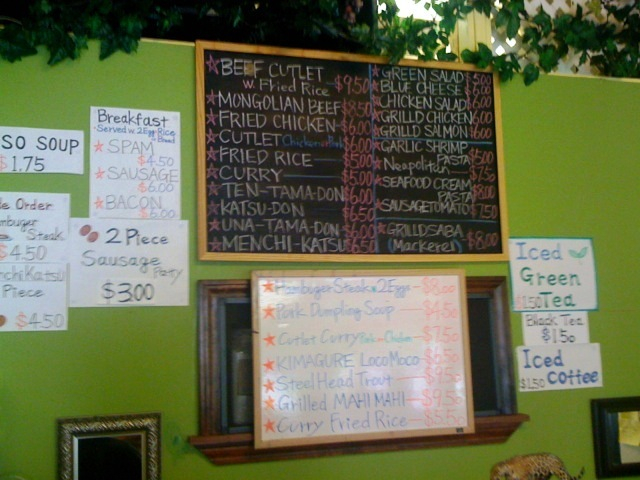 BEEF CUTLET
w. Fried Rice $9.50
MONGOLIAN BEEF 8.50
FRIED CHICKEN $6.00
CUTLET Chicken or Pork $6.00
FRIED RICE $5.00
CURRY $5.00
TEN-TAMA-DON $6.00
KATSU-DON $6.50
UNA-TAMA-DON $6.00
MENCHI-KATSU $6.50
GREEN SALAD 5.00
BLUE CHEESE
CHICKEN SALAD 6.00
GRILLD CHICKEN 6.00
GRILLD SALMON
GARLIC SHRIMP
PASTA $5.00
Neapolitan
SEAFOOD CREAM
PASTA $8.00
SAUSAGE TOMATO
GRILLD SABA
(Mackerel) $8.00
Breakfast
Served w. 2 Eggs Rice
SPAM
$4.50
SAUSAGE
$6.00
BACON
SO SOUP
$1.75
Order
Steak
$4.50
Piece
$4.50
2 Piece
Sausage Patty
$3.00
Hamburger Steak w 2 Eggs
Pork Dumpling Soup $4.50
Cutlet Curry Pork-Chicken $7.50
KIMAGURE Loco Moco
Steel Head Trout
Grilled MAHI MAHI
Curry Fried Rice $5.50
Iced
Green
1.50 Tea
Black Tea
$1.50
Iced
$1.50 Coffee